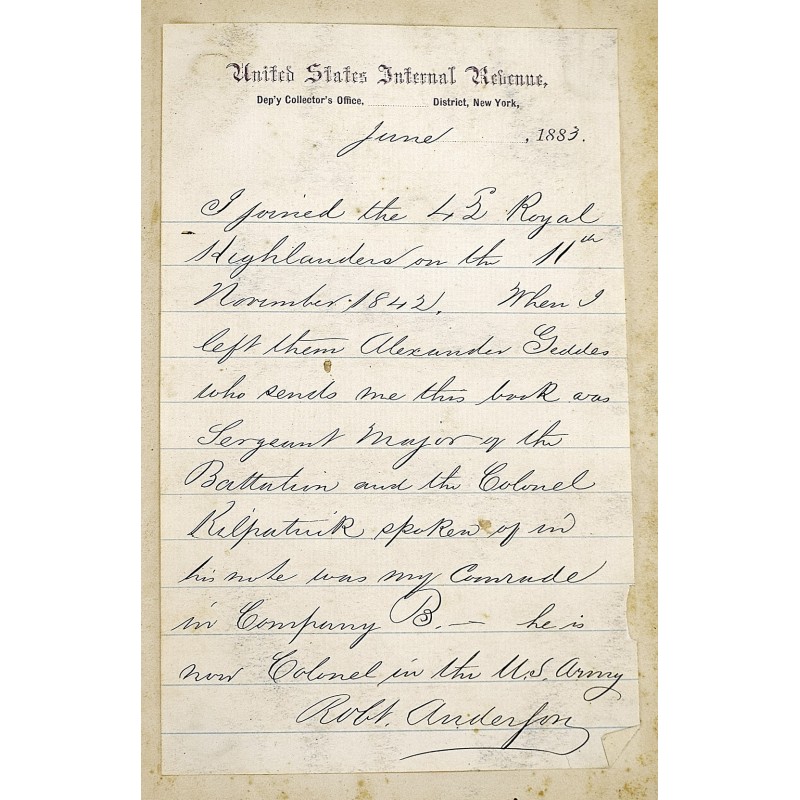 United States Internal Revenue,
Dep'y Collector's Office, ............ District, New York,
June ............, 1883.
I joined the 42 Royal
Highlanders on the 11th
November 1842. When I
left them Alexander Geddes
who sends me this book was
Sergeant Major of the
Battalion and the Colonel
Kilpatrick spoken of in
his note was my Comrade
in Company B. — he is
now Colonel in the U.S. Army
Robt. Anderson